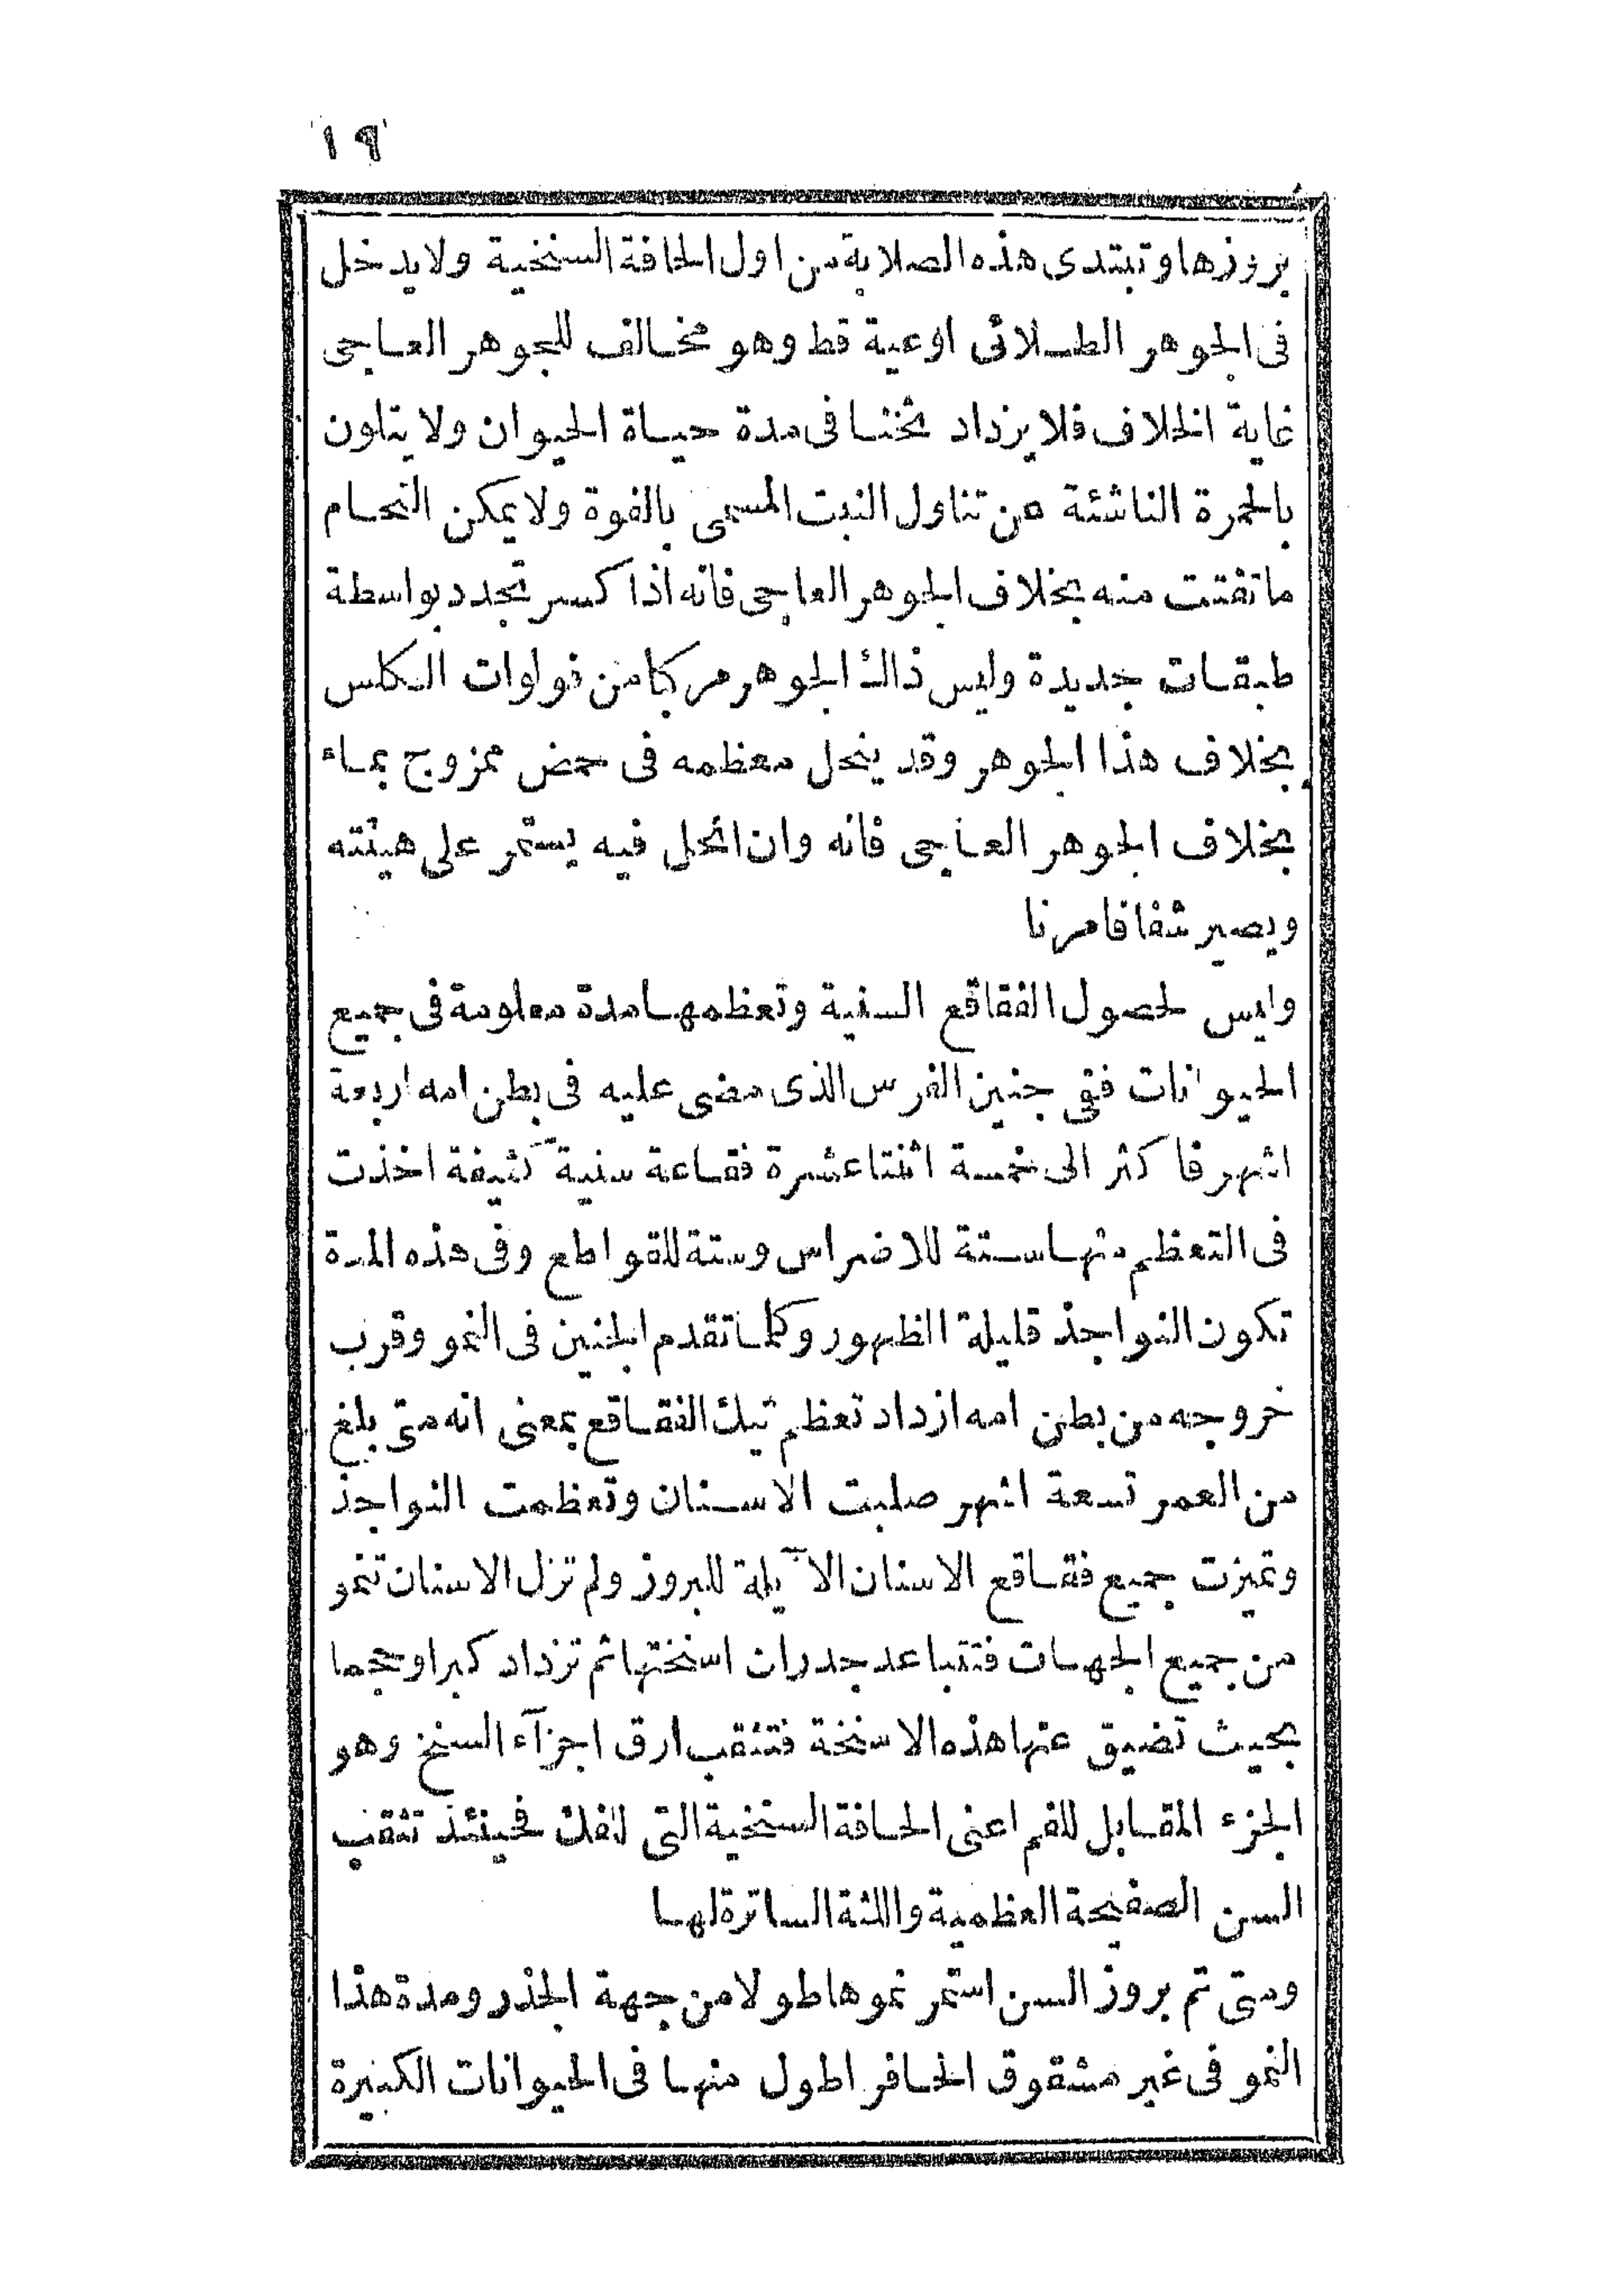 ١٩
بروزها وتبتدى هذه الصلابة من اول الحافة السنخية ولا يدخل
فى الجوهر الطلائى اوعية قط وهو مخالف للجوهر العاجى
غاية الخلاف فلا يزداد ثخنا فى مدة حياة الحيوان ولا يتلون
بالحمرة الناشئة عن تناول النبت المسمى بالفوة ولا يمكن التحام
ما تفتت منه بخلاف الجوهر العاجى فانه اذا كسر تجدد بواسطة
طبقات جديدة وليس ذاك الجوهر مركبا من فولوات الكلس
بخلاف هذا الجوهر وقد ينحل معظمه فى حمض ممزوج بماء
بخلاف الجوهر العاجى فانه وان انحل فيه يستمر على هيئته
ويصير شفافا مرنا
وليس لحصول الفقاقع السنية وتعظمها مدة معلومة فى جميع
الحيوانات ففى جنين الفرس الذى مضى عليه فى بطن امه اربعة
اشهر فاكثر الى خمسة اثنتا عشرة فقاعة سنية كثيفة اخذت
فى التعظم منها ستة للاضراس وستة للقواطع وفى هذه المدة
تكون النواجذ قليلة الظهور وكلما تقدم الجنين فى النمو وقرب
خروجه من بطن امه ازداد تعظم تيك الفقاقع بمعنى انه متى بلغ
من العمر تسعة اشهر صلبت الاسنان وتعظمت النواجذ
وتميزت جميع فقاقع الاسنان الآيلة للبروز ولم تزل الاسنان تنمو
من جميع الجهات فتتباعد جدران اسنختها ثم تزداد كبرا وحجما
بحيث تضيق عنها هذه الاسنخة فتثقب ارق اجزآء السنخ وهو
الجزء المقابل للفم اعنى الحافة السنخية التى للفك فحينئذ تثقب
السن الصفيحة العظمية واللثة الساترة لها
ومتى تم بروز السن استمر نموها طولا من جهة الجذر ومدة هذا
النمو فى غير مشقوق الحافر اطول منها فى الحيوانات الكبيرة